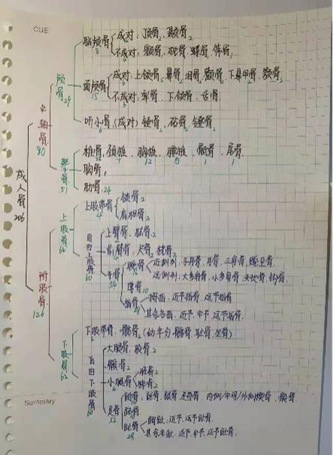 CUE
脑颅骨 成对：顶骨2 颞骨2
8 不成对：额骨 枕骨 蝶骨 筛骨
颅骨 29
面颅骨 成对：上颌骨 鼻骨 泪骨 颧骨 下鼻甲骨 腭骨
15 不成对：犁骨 下颌骨 舌骨
听小骨（成对）锤骨2 砧骨2 镫骨2
中轴骨 80
椎骨：颈椎7 胸椎12 腰椎5 骶骨1 尾骨1
躯干骨 51
胸骨1
肋骨24
成人骨 206
上肢带骨 锁骨2
4 肩胛骨2
上肢骨 64
自由上肢骨 60
上臂骨：肱骨2
前臂骨：尺骨2 桡骨2
手骨 54
腕骨 近侧列：手舟骨 月骨 三角骨 豌豆骨
远侧列：大多角骨 小多角骨 头状骨 钩骨
掌骨10
指骨 拇指：近节指骨 远节指骨
其余各指：近节 中节 远节指骨
附肢骨 126
下肢带骨：髋骨2（幼年分：髂骨 耻骨 坐骨）
下肢骨 62
自由下肢骨 60
大腿骨：股骨2
髌骨2
小腿骨 胫骨2
腓骨2
足骨 52
跗骨：距骨 跟骨 足舟骨 内侧/中间/外侧楔骨 骰骨
跖骨
趾骨 28
拇趾：近节 远节趾骨
其余各趾：近节 中节 远节趾骨
Summary